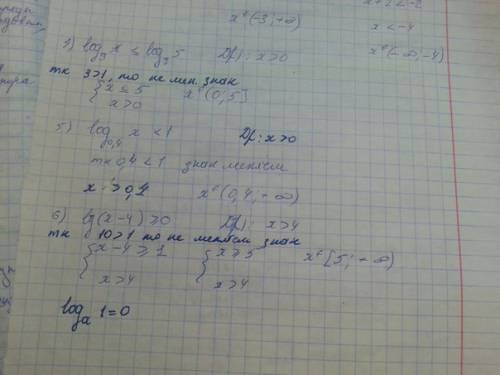 x ∈ (-3; +∞)
x < -4
x ∈ (-∞; -4)
log₃ x ≤ log₃ 5 D(f): x>0
тк 3>1, то не мен. знак
{ x ≤ 5
x>0 x ∈ (0; 5]
5) log₀,₄ x < 1 Df: x>0
тк 0,4 < 1 знак меняем
x > 0,4 x ∈ (0,4; +∞)
6) lg(x-4) ≥ 0 D(f): x>4
тк 10>1 то не меняем знак
{ x-4 ≥ 1 { x ≥ 5 x ∈ [5; +∞)
x>4 x>4
logₐ 1 = 0